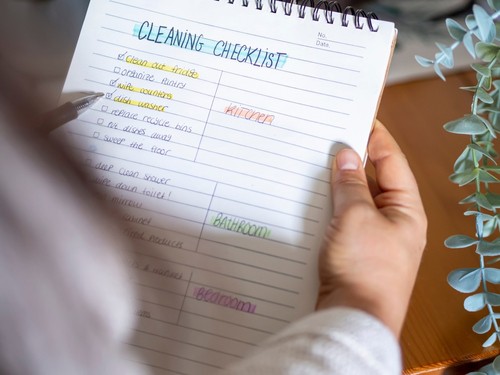 No.
Date.
CLEANING CHECKLIST
clean out fridge
organize pantry
wipe counters
dish washer
replace recycle bins
put dishes away
sweep the floor
KITCHEN
deep clean shower
wipe down toilet!
BATHROOM
products
BEDROOM